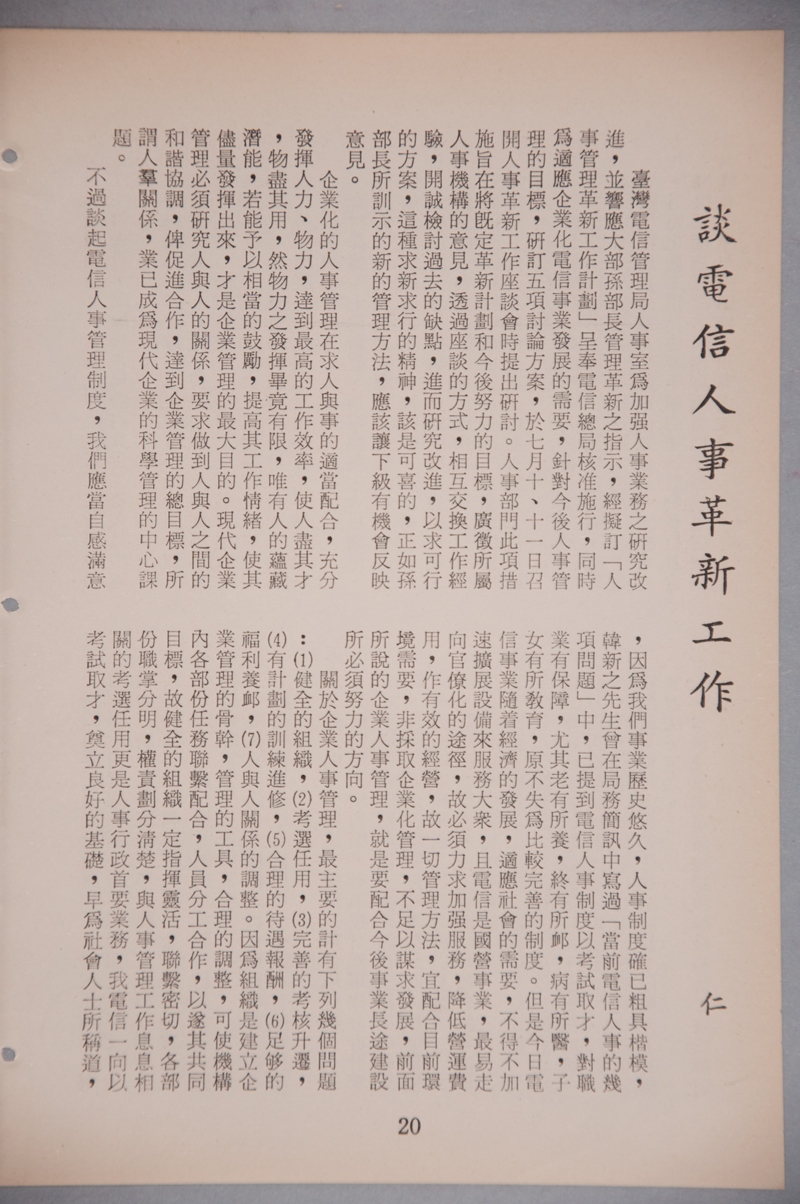 談電信人事革新工作
仁
臺灣電信管理局人事室爲加强人事業務之硏究改
進，並響應大部孫部長管理革新之指示，經擬訂「人
事管理革新工作計劃」呈奉電信總局核准施行，同時
爲適應企業化電信事業發展的需要，針對今後人事管
理的目標，硏訂五項討論方案，於七月十、十一日召
開人事革新工作座談會時提出硏討。人事部門此項措
施旨在將旣定革新計劃和今後努力的目標，廣徵所屬
人事機構的意見，透過座談的方式，相互交換工作經
驗，開誠檢討過去的缺點，進而硏究改進，以求可行
的方案，這種求新求行的精神，該是可喜的，正如孫
部長所訓示的新的管理方法，應該讓下級有機會反映
意見。
企業化的人事管理在求人與事的適當配合，充分
發揮人力、物力，達到最高的工作效率，使人盡其才
，物盡其用，然物力之發揮畢竟有限，唯有人的蘊藏
潛能，若能予以相當的鼓勵，提高其工作情緒，使其
儘量發揮出來，才是企業管理的最大目的。現代企業
管理必須硏究人與人的關係，要求做到人與人之間的
和諧協調，俾促進合作，達到企業管理的總目標，所
謂人羣關係，業已成爲現代企業的科學管理的中心課
題。
不過談起電信人事管理制度，我們應當自感滿意
，因爲我們事業歷史悠久，人事制度確已粗具楷模，
韓新之先生曾在局務簡訊中寫過「當前電信人事的幾
項問題」中，已提到電信人事制度以考試取才，對職
業有保障，尤其老有所養，終有所卹，病有所醫，子
女有所敎育，原不失爲比較完善的制度。但是今日電
信事業隨着經濟的發展，適應社會的需要，不得不加
速擴展設備來服務大衆，且電信是國營事業，最易走
向官僚化的途徑，故必須力求加强服務，降低營運費
用，作有效的經營，故一切管理方法，宜配合目前環
境需要，非採取企業化管理，不足以謀求發展，前面
所說的企業人事管理，就是要配合今後事業長途建設
所必須努力的方向。
關於企業人事管理，最主要的計有下列幾個問題
：⑴健全的組織，⑵考選任用，⑶完善的考核升遷，
⑷有計劃的訓練進修，⑸合理的待遇報酬，⑹足够的
福利養卹，⑺人與人關係的調整。因爲組織是建立企
業管理的骨幹，管理的工具，合理的調整，可使機構
內各部份任務聯繫配合，人員分工合作，以遂其共同
目標，故健全的組織一定指揮靈活，聯繫密切，各部
份職掌分明，權責劃分淸楚，與人事管理工作息息相
關的考選任用更是人事行政首要業務，我電信一向以
考試取才，奠立良好的基礎，早爲社會人士所稱道，
20